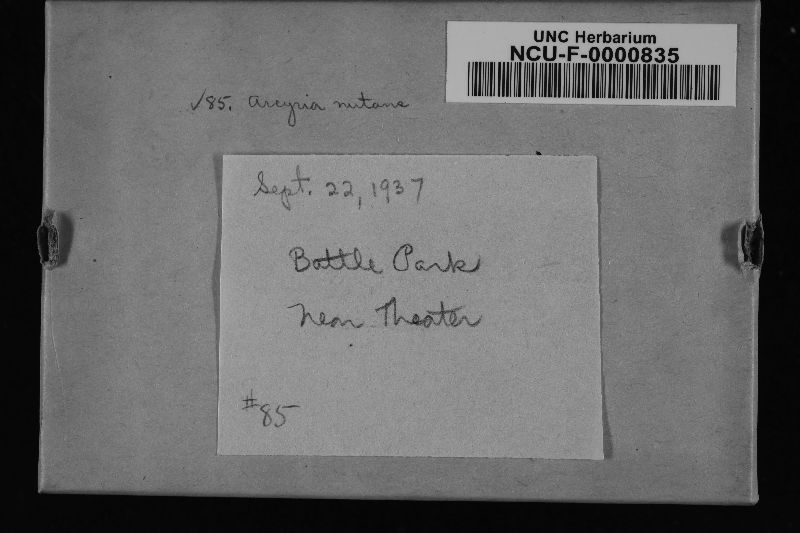 UNC Herbarium
NCU-F-0000835
✓85. Arcyria nutans
Sept. 22, 1937
Battle Park
Near Theater
#85